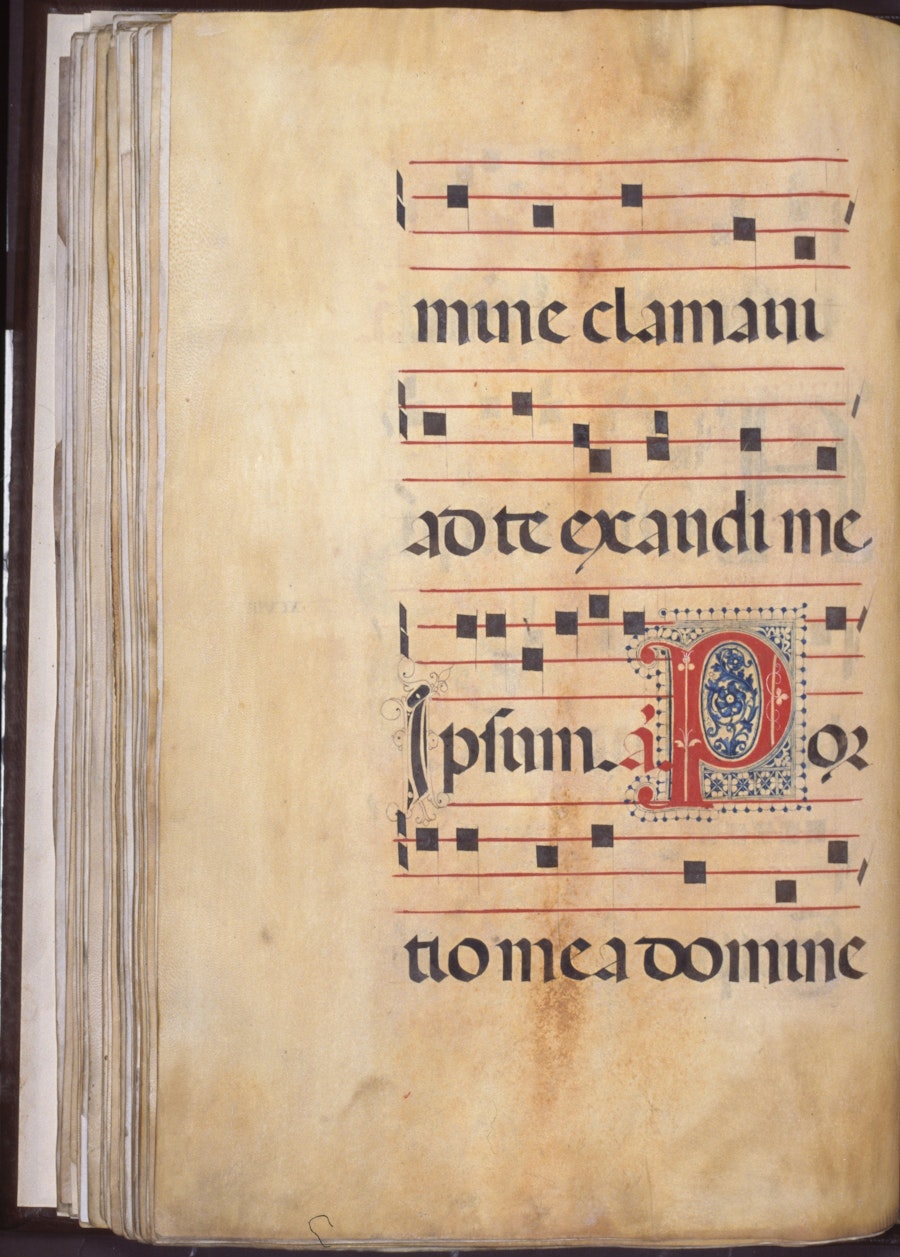 mine clamavi
ad te exaudi me
Ipsum. a. Por
tio mea domine